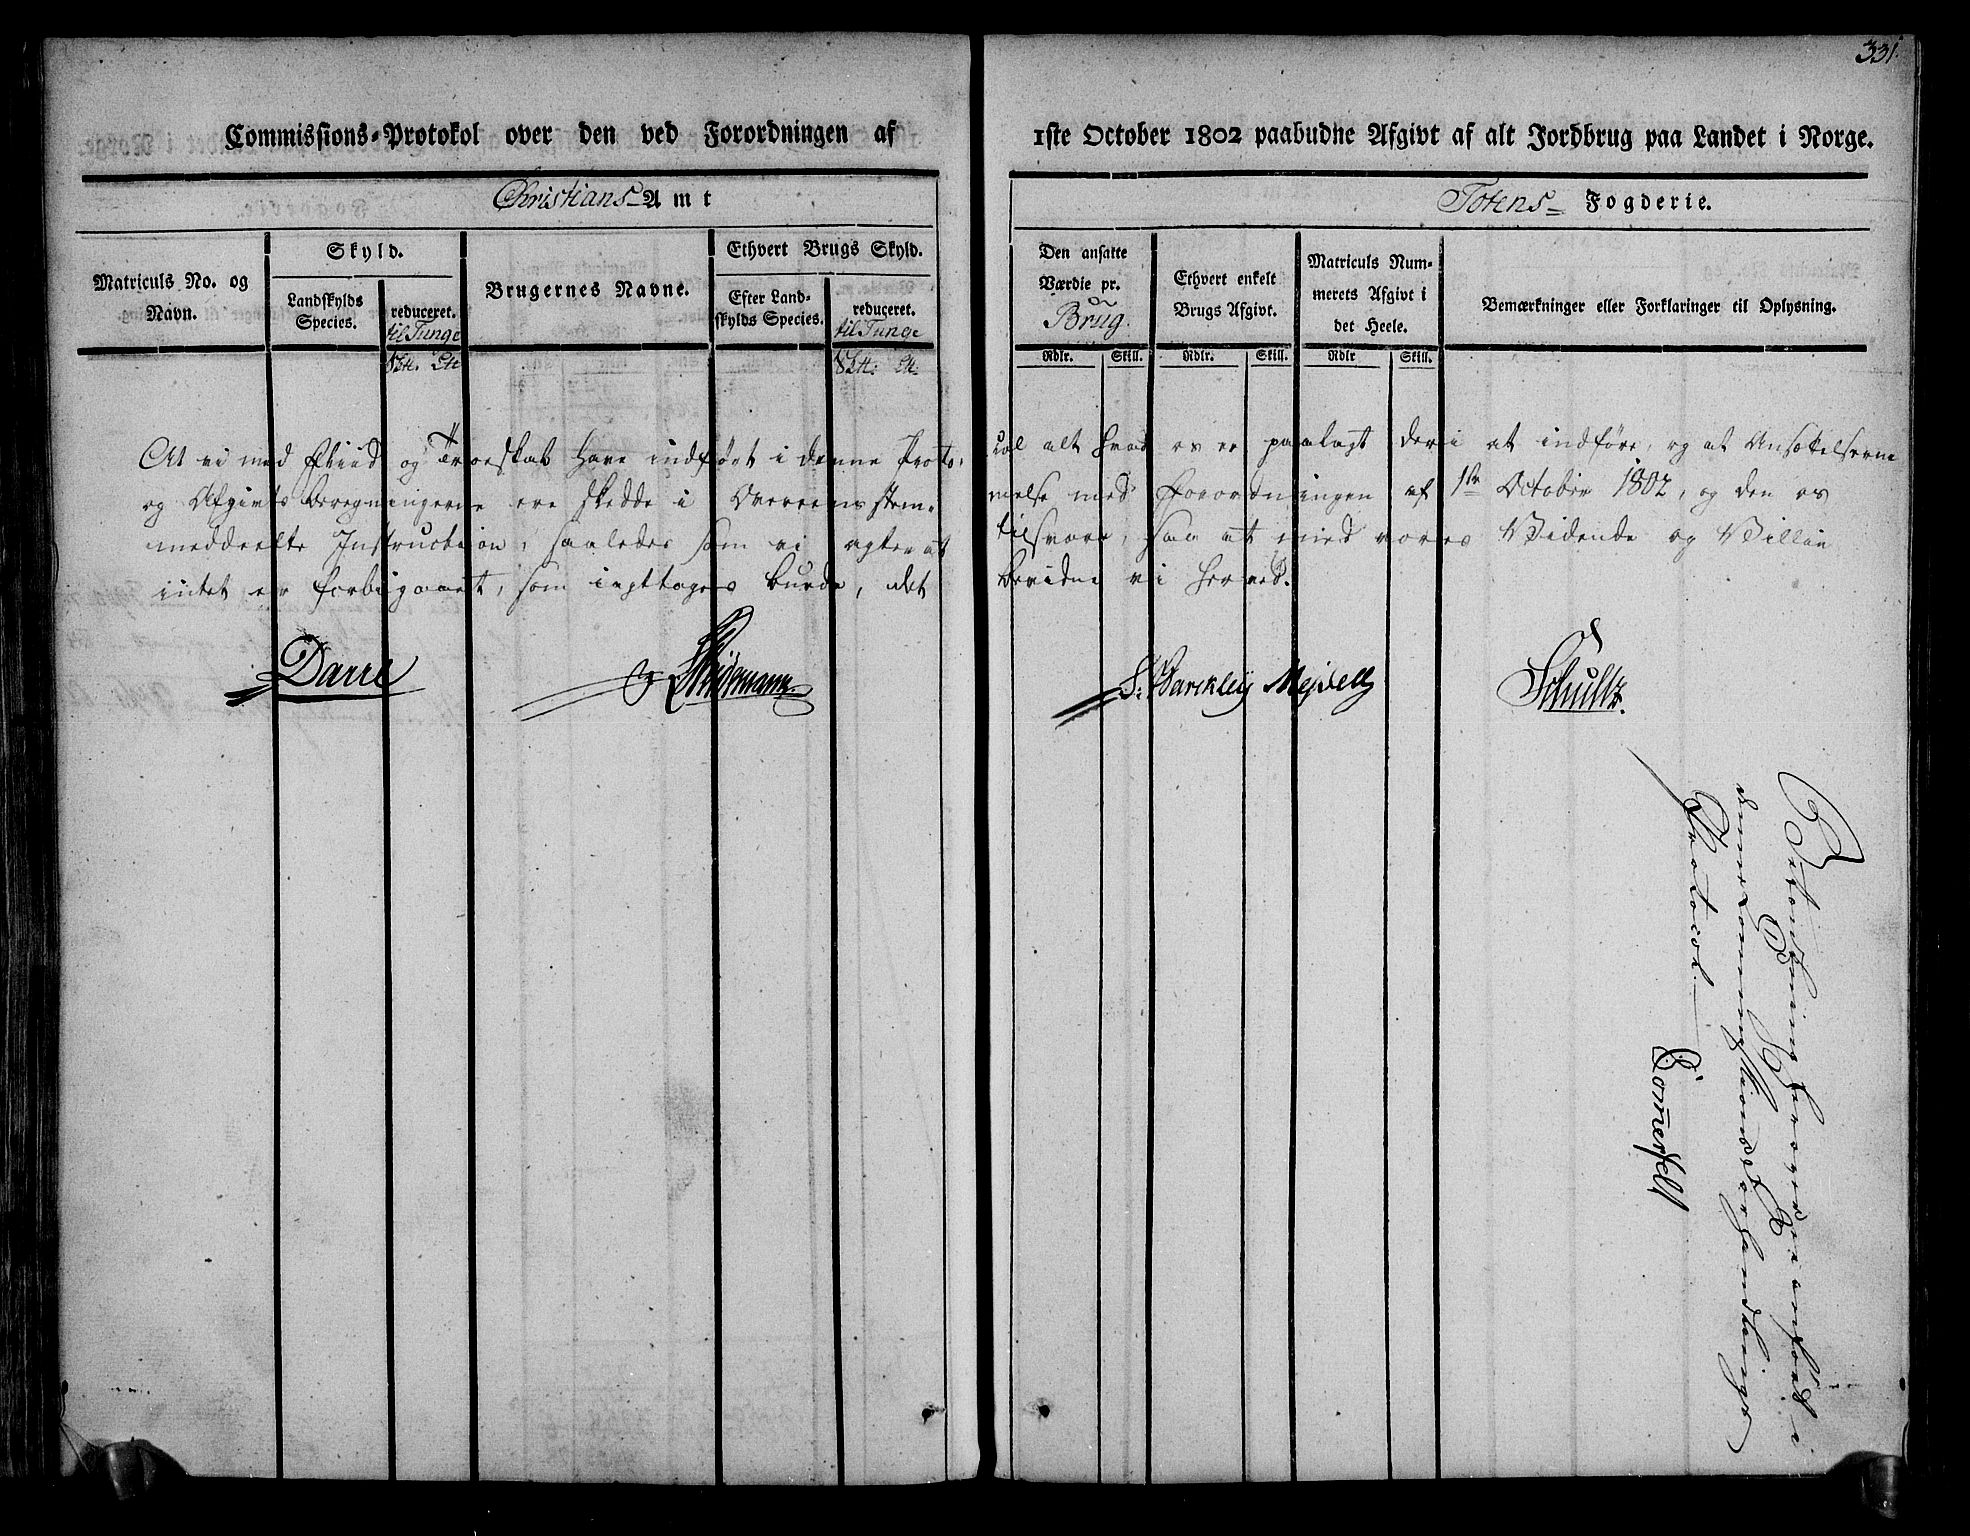 331.
Commissions-Protokol over den ved Forordningen af 1ste October 1802 paabudne Afgivt af alt Jordbrug paa Landet i Norge.
Christians Amt
Totens Fogderie.
Matriculs No. og Navn.
Skyld.
Landskylds Species.
reduceret. til Tunge
Brugernes Navne.
Ethvert Brugs Skyld.
Efter Landskylds Species.
reduceret. til Tunge
Den ansatte Værdie pr. Brug.
Ethvert enkelt Brugs Afgivt.
Matriculs Nummerets Afgivt i det Heele.
Bemærkninger eller Forklaringer til Oplysning.
Rdlr. Skill. Rdlr. Skill. Rdlr Skill.
At vi med Fliid og Troeskab have indført i denne Protocol alt hvad os er paalagt deri at indføre, og at Ansættelserne
og Afgivts Beregningerne ere skedde i Overeensstemmelse med Forordningen af 1ste October 1802, og den os
meddeelte Instruction, saaledes som vi agter at tilsvare, saa at med vores Vidende og Villie
intet er forbigaaet, som iagttages burde, det bevidne vi herved.
Daue
Weidemann.
S: Barckley Mejdell
Schultz.
denne Commissions Forhandlings
Protocol
Sommerfelt